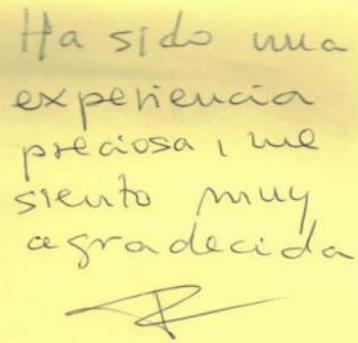 Ha sido una
experiencia
preciosa, me
siento muy
agradecida